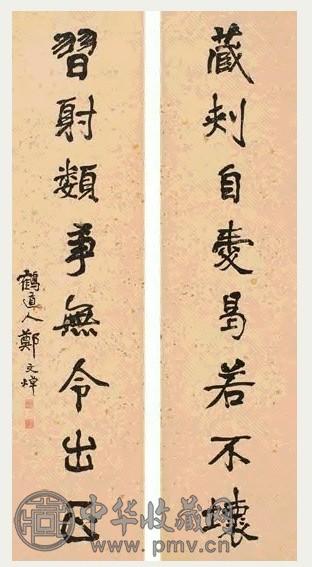 藏刾自愛曷若不壞
習射類爭無令出
鶴道人鄭文焯
中华收藏网
www.pmv.cn